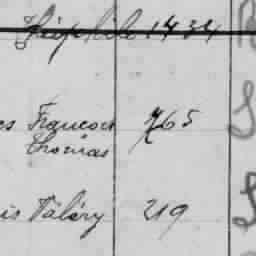 Théophile 1434
es François 765
Thomas
is Valéry 219